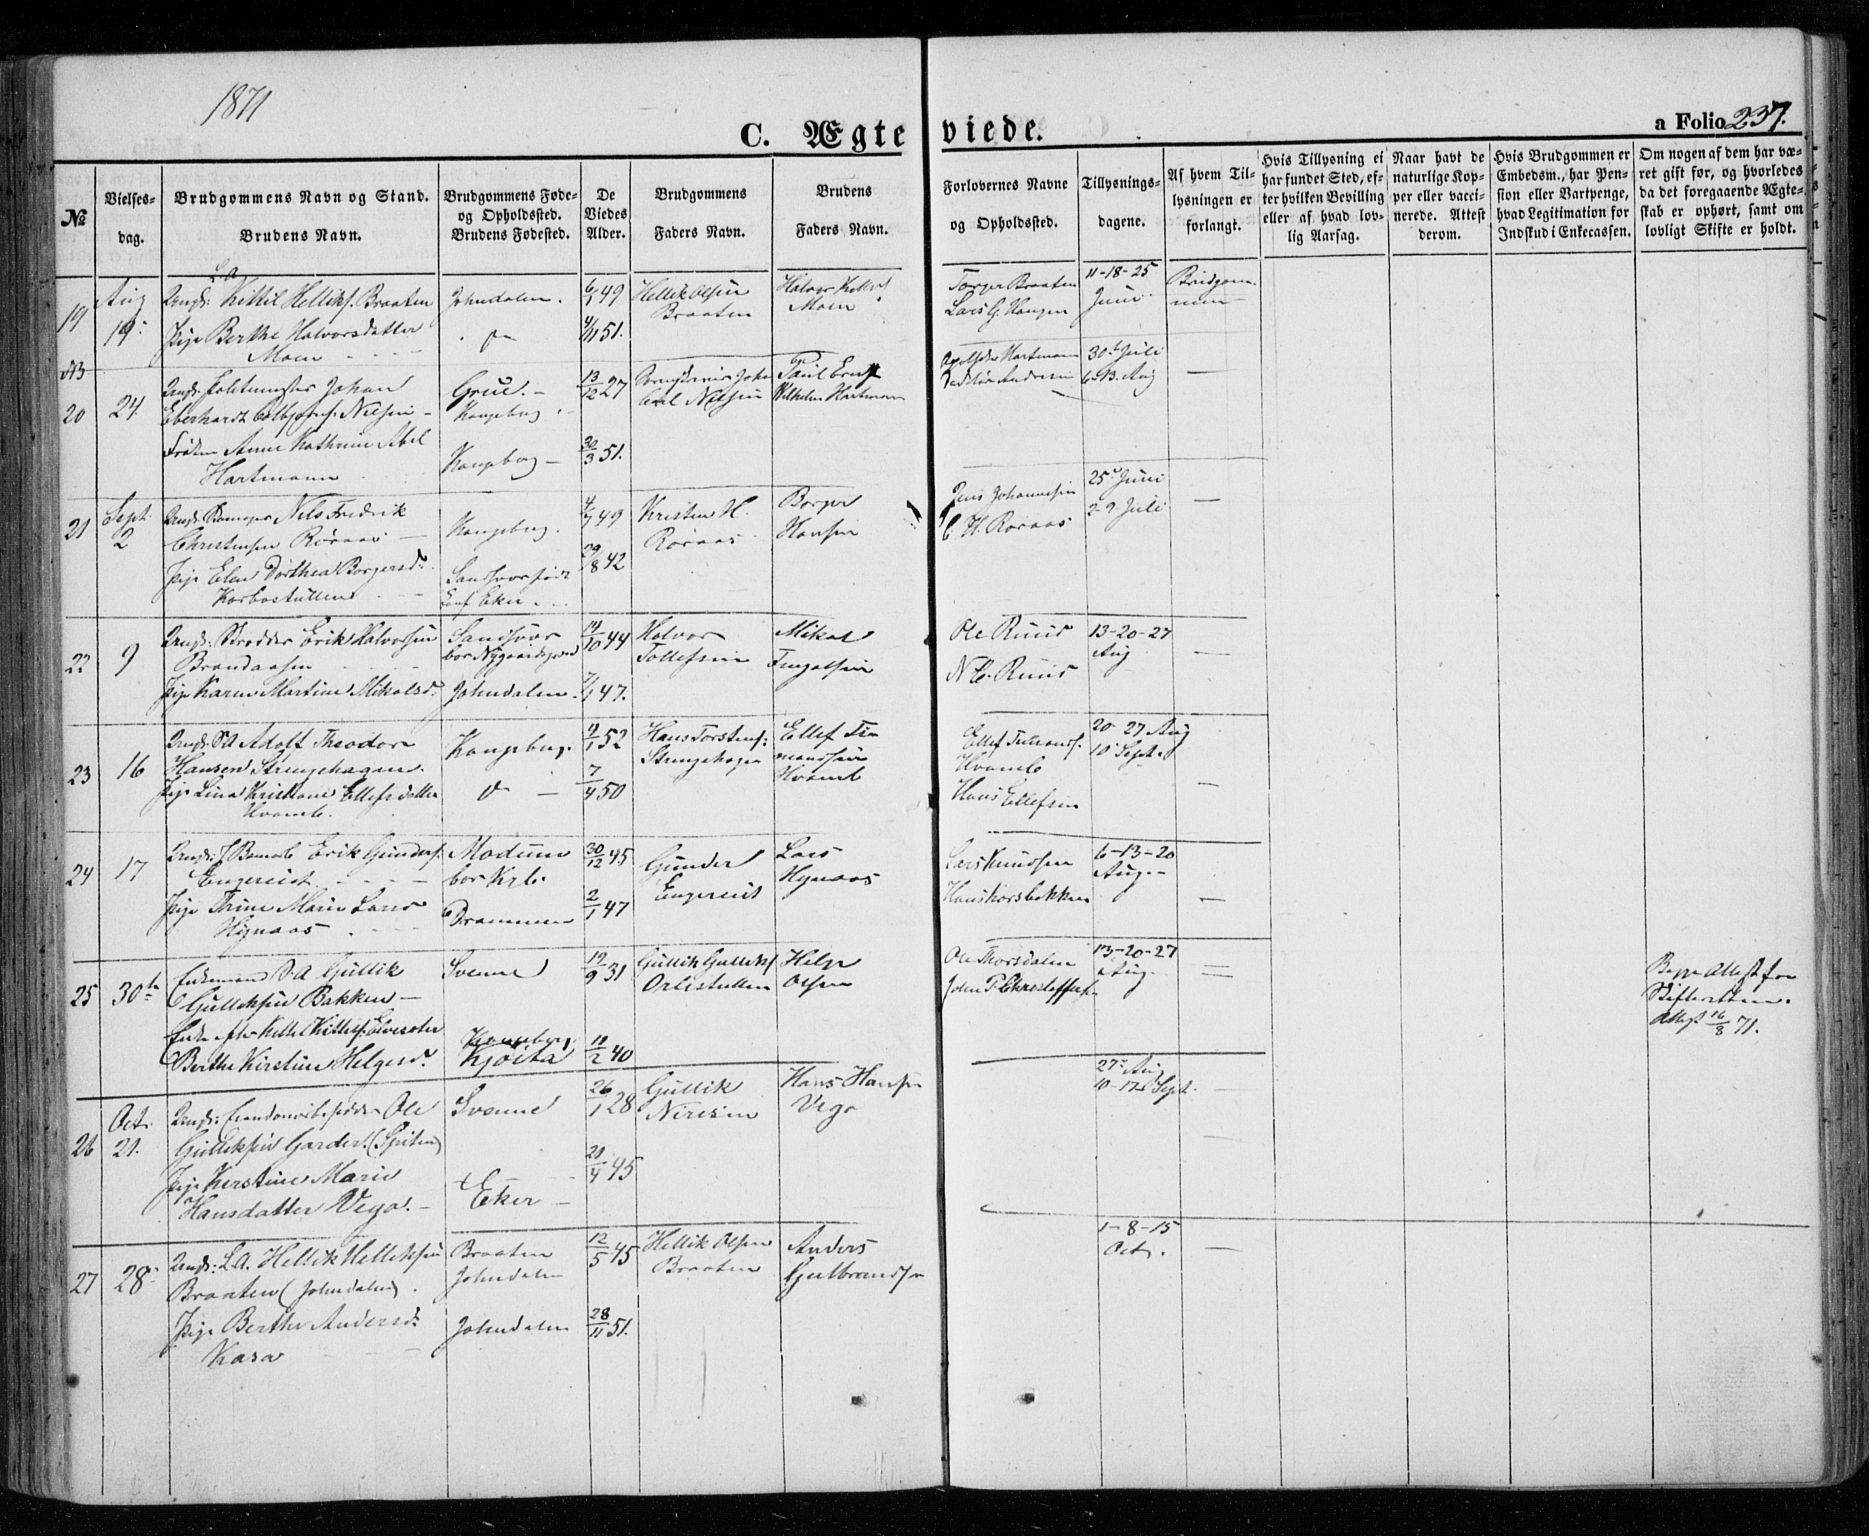 1871
C. Ægteviede.
a Folio 237.
№
Vielses-
dag.
Brudgommens Navn og Stand.
Brudens Navn.
Brudgommens Føde-
og Opholdssted.
Brudens Fødested.
De
Viedes
Alder.
Brudgommens
Faders Navn.
Brudens
Faders Navn.
Forlovernes Navne
og Opholdssted.
Tillysnings-
dagene.
Af hvem Til-
lysningen er
forlangt.
Hvis Tillysning ei
har fundet Sted, ef-
ter hvilken Bevilling
eller af hvad lov-
lig Aarsag.
Naar havt de
naturlige Kop-
per eller vacci-
nerede. Attest
derom.
Hvis Brudgommen er
Embedsm., har Pen-
sion eller Vartpenge,
hvad Legitimation for
Indskud i Enkecassen.
Om nogen af dem har væ-
ret gift før, og hvorledes
da det foregaaende Ægte-
skab er ophørt, samt om
lovligt Skifte er holdt.
19
Aug
19.
L.A.
Ungk: Kittil Helliks. Braaten
Pige Berthe Halvorsdatter
Moen
Johndalen.
6/1 49
4/11 51.
Hellik Olsen
Braaten
Halvor
Moen
Torger Braaten
Lars G. Haugen
11-18-25
Juni
Brudgom-
men
20
24.
Ungk: Johan
Eberhardt Nilsen
Frøken Anne Kathrine Abel
Hartmann
Grue.
Kongsberg
Kongsberg
13/12 27
30/3 51.
Nilsen
Paul Ernst
Wilhelm Hartmann
Hartmann
Andersen
30te Juli
6-13. Aug
21
Sept.
2
Ungk: Nils Fredrik
Christensen Roraas
Pige Elen Dorthea Borgersd.
Korbostullen
Kongsberg.
Sandsvær født
Conf Eker.
4/7 49
29/8 42
Kristen H.
Roraas
Borger
Hansen
Jens Johannesen
C. H. Roraas
25de Juni
2-9 Juli
22
9
Ungk: Erik Halvorsen
Brandaasen
Pige Karen Martine Mikalsd.
Sandsvær
bor
Johndalen.
14/10 44
7/1 47.
Halvor
Tollefsen
Mikal
Ole Ruud
N C. Ruud
13-20-27
Aug
23
16
Ungk: S.A Adolf Theodor
Hansen Strengehagen.
Pige Lina Kristiane Ellefsdatter
Hvamb.
Kongsberg.
52
7/4 50
Hans Torstens:
Strengehagen
Ellef
Hvamb
Ellef
Hvamb
Hans Ellefsen
20-27 Aug
10 Sept.
24
17
Ungk: Erik Gunders.
Engereist
Pige Thrine Marie Lars
Hynaas
Modum
bor Krb.
Drammen
30/12 45
2/1 47
Gunder
Engereist
Lars
Hynaas
Lars Knudsen
Hans Korsbakken
6-13-20
Aug.
25
30te
Enkemand S.A Gullik
Gulliksen Bakken
Enke efter Kittel Kittels.
Berthe Kirstine Helgesd.
Svenne
Kongsberg
12/9 31
11/2 40
Gullik Gulliks.
Orlistullen
Helge
Olsen
Ole Thorsdalen
John P. Christoffers.
13-20-27
Aug.
Attest fra
Skifteretten.
Attest 16/8 71.
26
Oct.
21.
Ungk: Ole
Gulliksen Garder. (Spiten)
Pige Kirstine Marie
Hansdatter Vego.
Svenne
Eker
26/1 28
20/4 45
Gullik
Hans Hansen
Vego
27 Aug
10-17 Sept.
27
28
Ungk: L.A. Hellik Helliksen
Braaten (Johndalen).
Pige Berthe Andersd.
Kasa
Braaten
Johndalen
Johndalen
12/5 45
28/11 51.
Hellik Olsen
Braaten
Anders
Gulbrandsen
1-8-15
Oct.